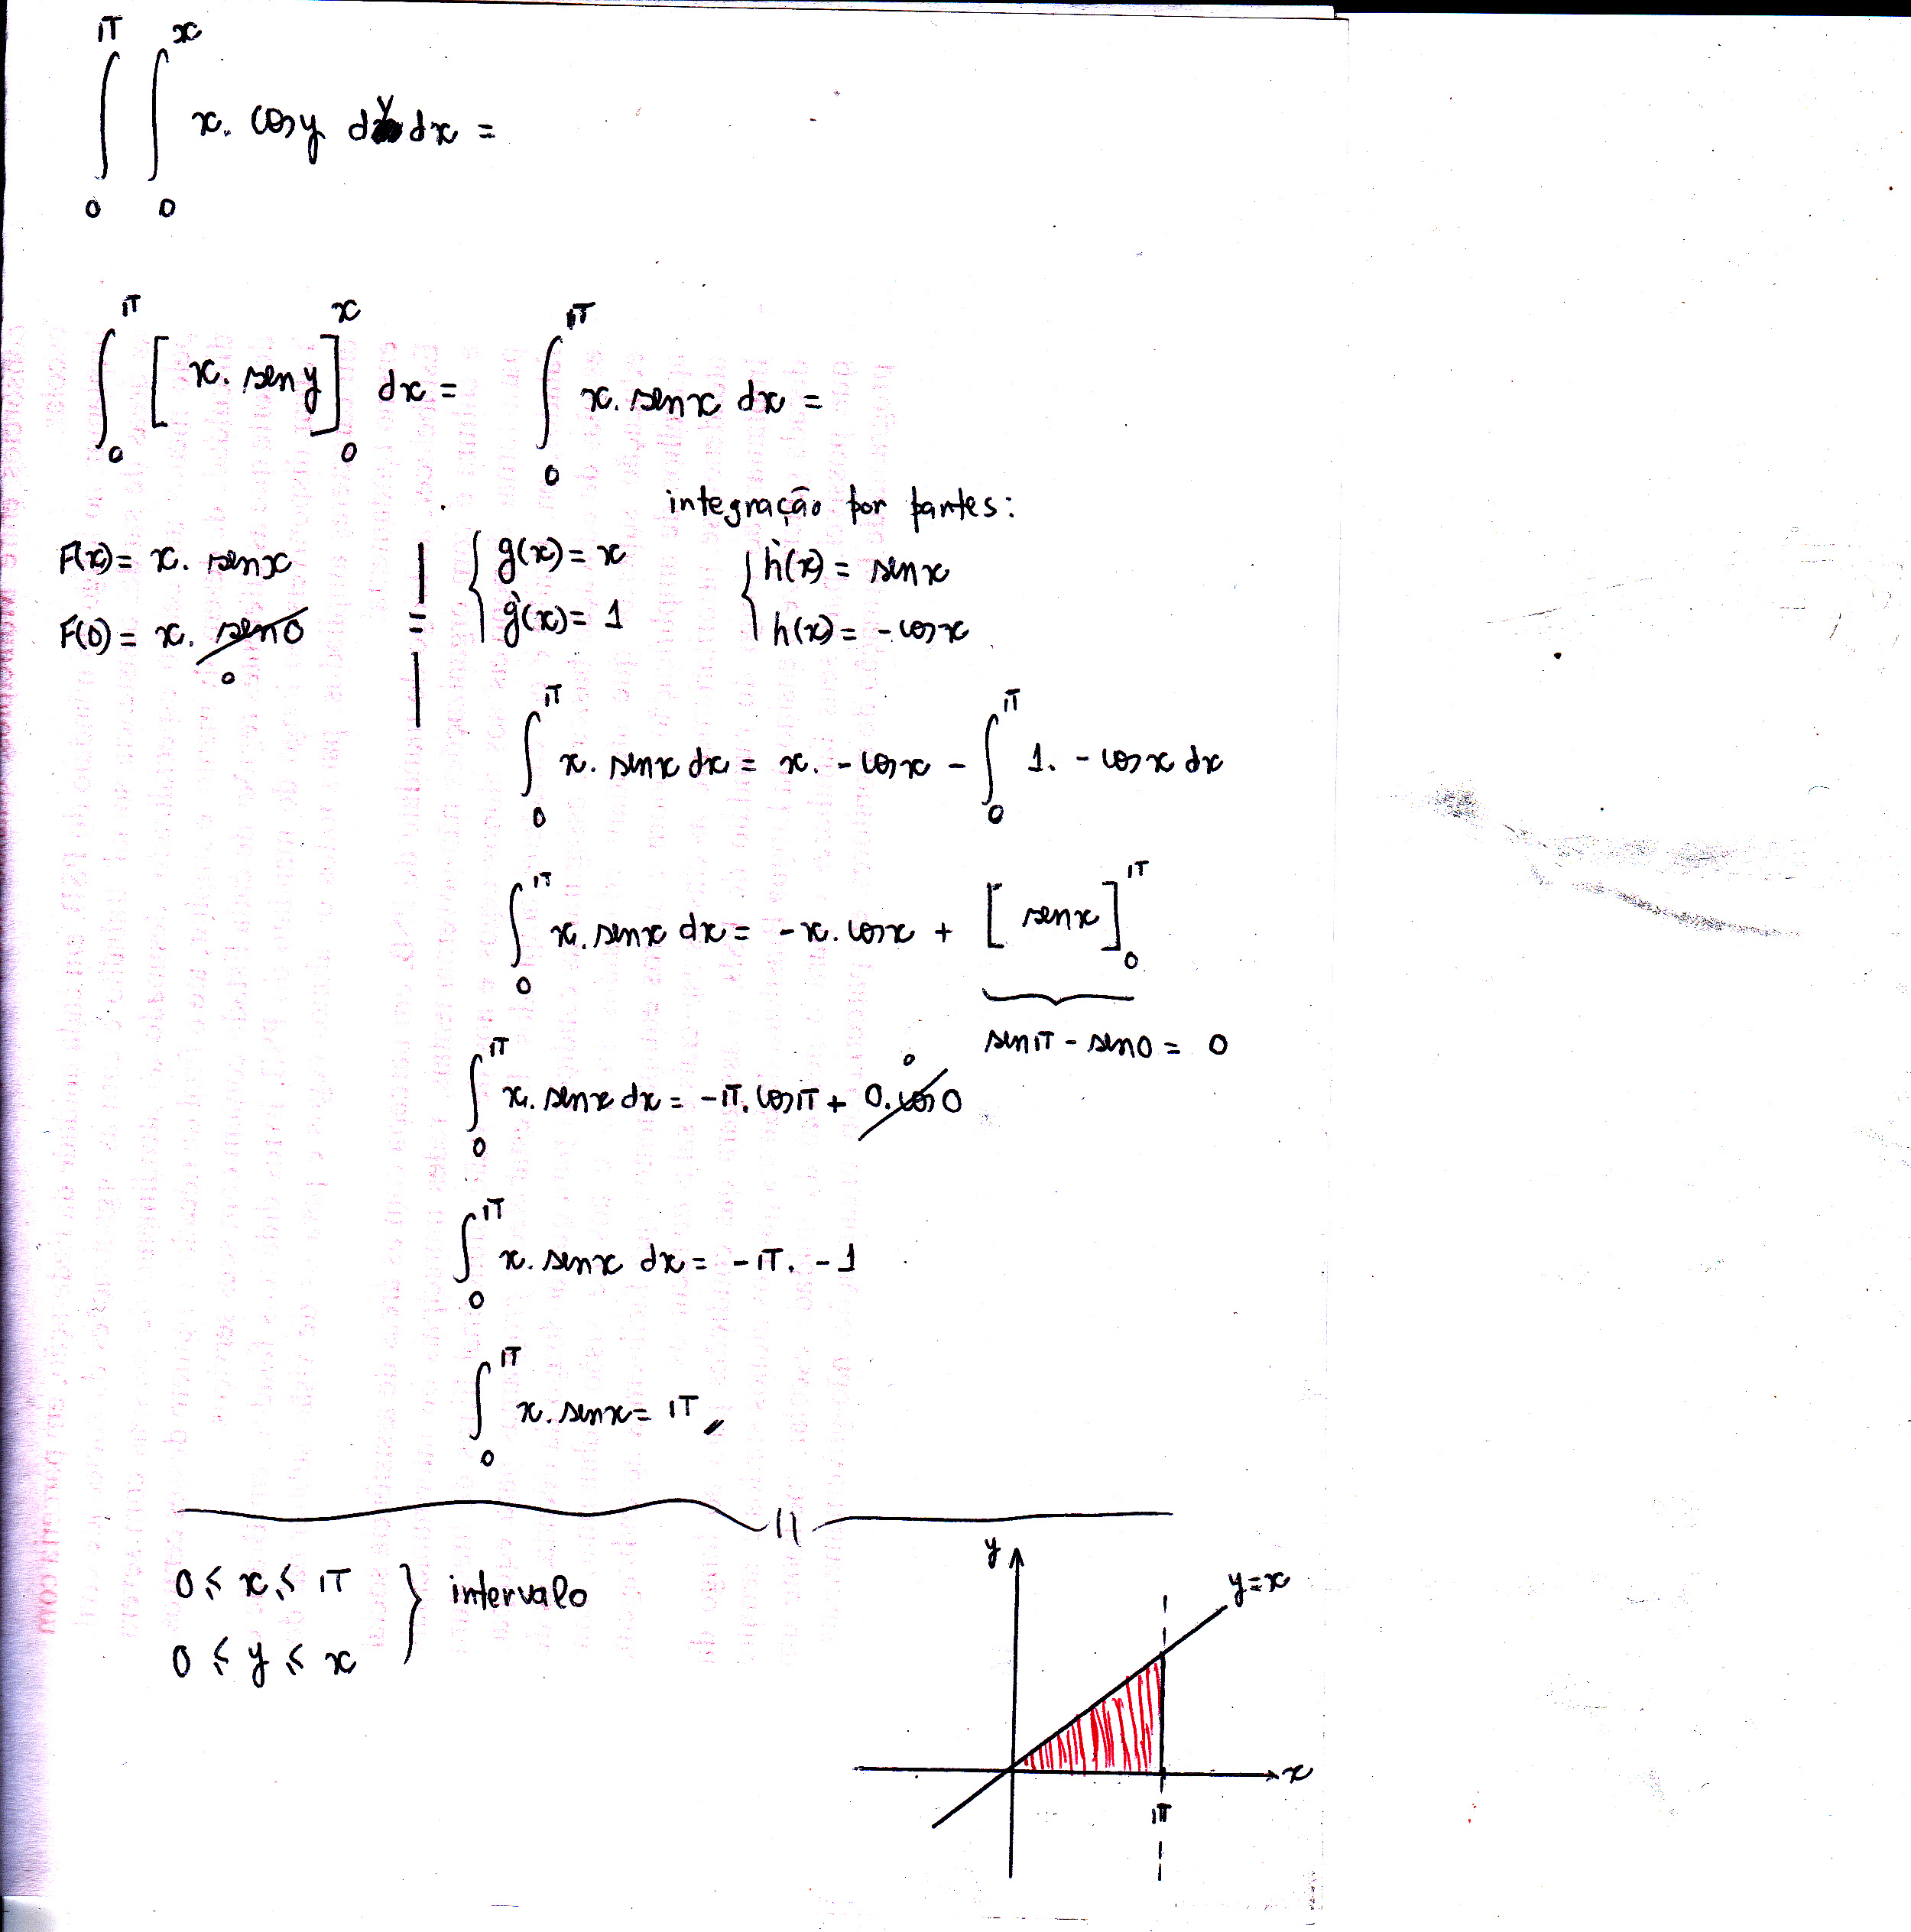 ∫₀^π ∫₀^x x. cos y dy dx =
∫₀^π [x. sen y]₀^x dx = ∫₀^π x. sen x dx =
integração por partes:
F(x) = x. sen x | g(x) = x h'(x) = sen x
F(0) = x. sen 0 = g'(x) = 1 h(x) = - cos x
0
∫₀^π x. sen x dx = x. - cos x - ∫₀^π 1. - cos x dx
∫₀^π x. sen x dx = -x. cos x + [sen x]₀^π
sen π - sen 0 = 0
0
∫₀^π x. sen x dx = -π. cos π + 0. cos 0
∫₀^π x. sen x dx = -π. -1
∫₀^π x. sen x = π
0 ≤ x ≤ π } intervalo
0 ≤ y ≤ x
y
y=x
x
π